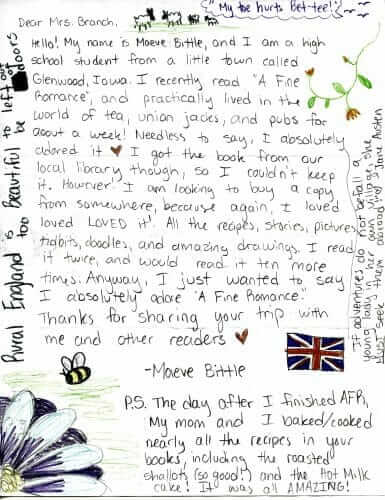 "My toe hurts Bet-tee!"
Dear Mrs. Branch,
Hello! My name is Maeve Bittle, and I am a high
school student from a little town called
Glenwood, Iowa. I recently read "A Fine
Romance", and practically lived in the
world of tea, union jacks, and pubs for
about a week! Needless to say, I absolutely
adored it ♥ I got the book from our
local library though, so I couldn't keep
it. However, I am looking to buy a copy
from somewhere, because again, I loved
loved LOVED it! All the recipes, stories, pictures
tidbits, doodles, and amazing drawings. I read
it twice, and would read it ten more
times. Anyway, I just wanted to say
I absolutely adore "A Fine Romance."
Thanks for sharing your trip with
me and other readers ♥
-Maeve Bittle
P.S. The day after I finished AFR,
My mom and I baked/cooked
nearly all the recipes in your
books, including the roasted
shallots (so good!) and the Hot Milk
cake! It was all AMAZING!
Rural England is too beautiful to be left out of doors
If adventures do not befall a
young lady in her own village, she
must seek them abroad Jane Austen